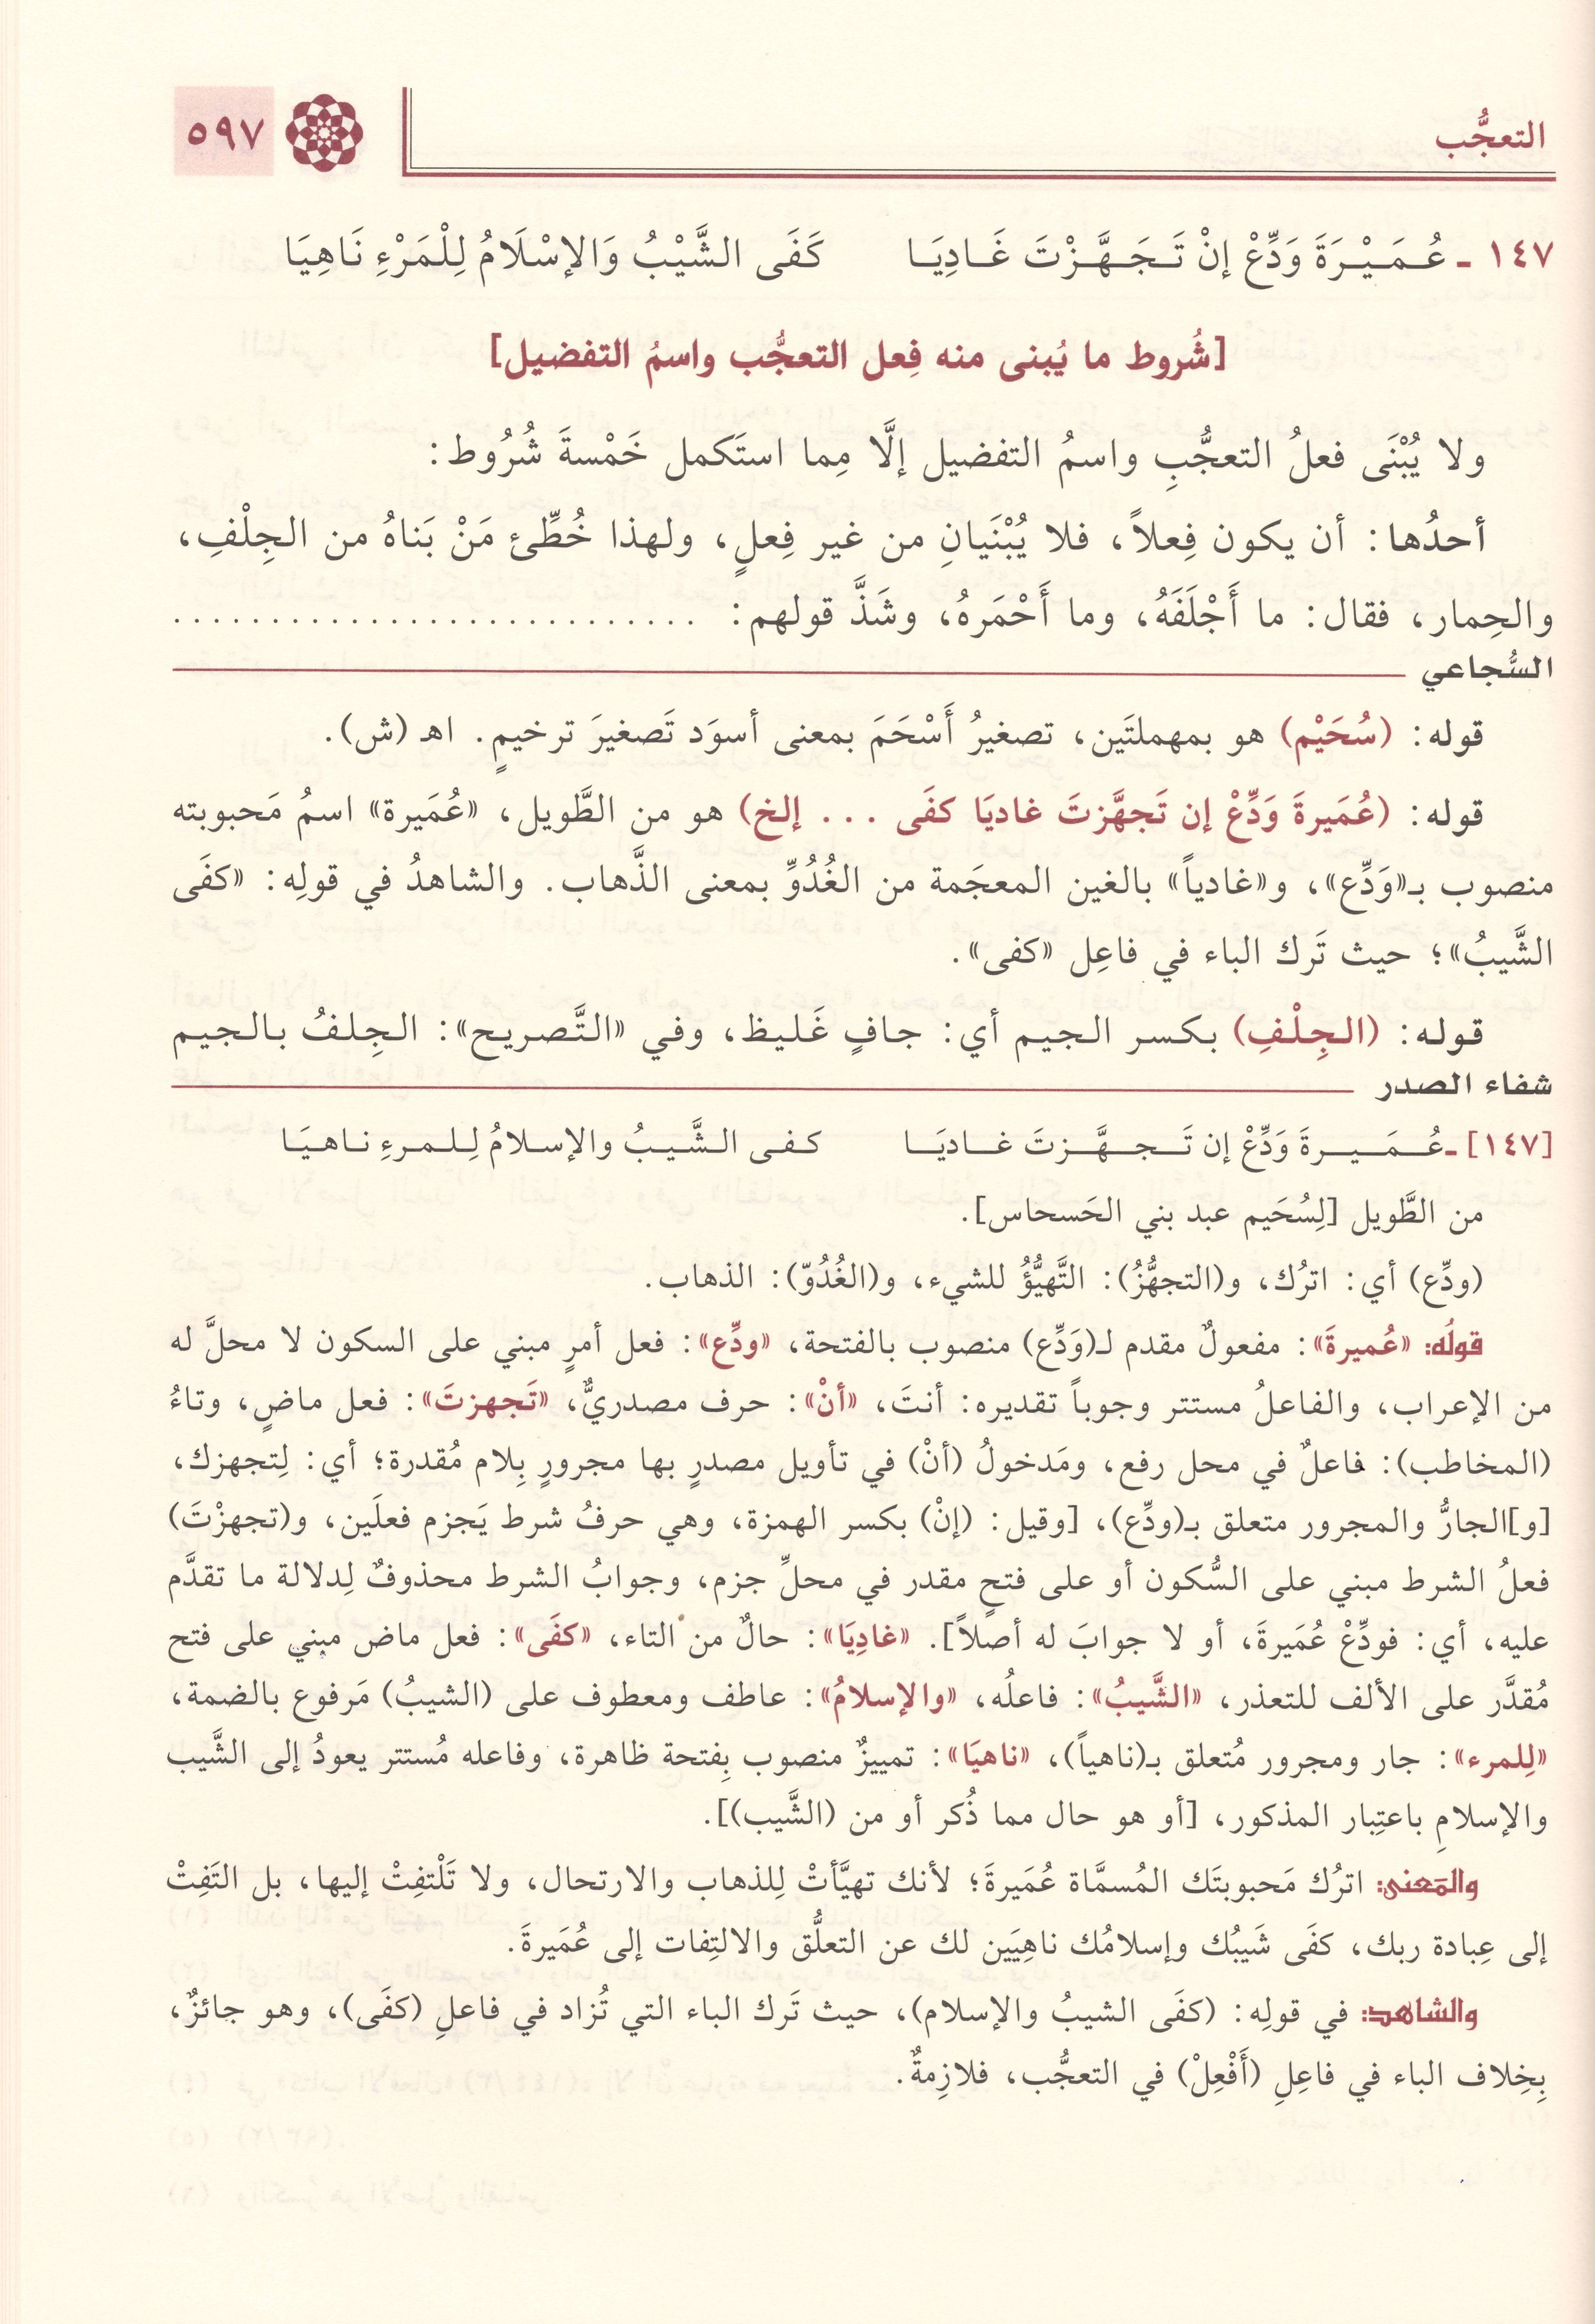 التعجُّب
٥٩٧
١٤٧ - عُـمَـيْـرَةَ وَدِّعْ إنْ تَـجَـهَّـزْتَ غَـادِيَـا كَفَى الشَّيْبُ وَالإسْلَامُ لِلْمَرْءِ نَاهِيَا
[شُروط ما يُبنى منه فِعل التعجُّب واسمُ التفضيل]
ولا يُبْنَى فعلُ التعجُّبِ واسمُ التفضيل إلَّا مِما استَكمل خَمْسةَ شُرُوط:
أحدُها: أن يكون فِعلاً، فلا يُبْنَيانِ من غير فِعلٍ، ولهذا خُطِّئ مَنْ بَناهُ من الجِلْفِ،
والحِمار، فقال: ما أَجْلَفَهُ، وما أَحْمَرهُ، وشَذَّ قولهم: ...........................
السُّجاعي
قوله: (سُحَيْم) هو بمهملتَين، تصغيرُ أَسْحَمَ بمعنى أسوَد تَصغيرَ ترخيمٍ. اهـ (ش).
قوله: (عُمَيرةَ وَدِّعْ إن تَجهَّزتَ غاديَا كفَى ... إلخ) هو من الطَّويل، «عُمَيرة» اسمُ مَحبوبته
منصوب بـ«وَدِّع»، و«غادياً» بالغين المعجَمة من الغُدُوِّ بمعنى الذَّهاب. والشاهدُ في قولِه: «كفَى
الشَّيبُ»؛ حيث تَرك الباء في فاعِل «كفى».
قوله: (الجِلْفِ) بكسر الجيم أي: جافٍ غَليظ، وفي «التَّصريح»: الجِلفُ بالجيم
شفاء الصدر
[١٤٧] ـ عُـمَـيـرةَ وَدِّعْ إن تَـجـهَّـزتَ غـاديَـا كـفـى الـشَّـيـبُ والإسـلامُ لِـلـمـرءِ نـاهـيَـا
من الطَّويل [لِسُحَيم عبد بني الحَسحاس].
(ودِّع) أي: اترُك، و(التجهُّزُ): التَّهيُّؤُ للشيء، و(الغُدُوّ): الذهاب.
قولُه: «عُميرةَ»: مفعولٌ مقدم لـ(وَدِّع) منصوب بالفتحة، «ودِّع»: فعل أمرٍ مبني على السكون لا محلَّ له
من الإعراب، والفاعلُ مستتر وجوباً تقديره: أنتَ، «أنْ»: حرف مصدريٌّ، «تَجهزتَ»: فعل ماضٍ، وتاءُ
(المخاطب): فاعلٌ في محل رفع، ومَدخولُ (أنْ) في تأويل مصدرٍ بها مجرورٍ بِلام مُقدرة؛ أي: لِتجهزك،
[و]الجارُّ والمجرور متعلق بـ(ودِّع)، [وقيل: (إنْ) بكسر الهمزة، وهي حرفُ شرط يَجزم فعلَين، و(تجهزْتَ)
فعلُ الشرط مبني على السُّكون أو على فتحٍ مقدر في محلِّ جزم، وجوابُ الشرط محذوفٌ لِدلالة ما تقدَّم
عليه، أي: فودِّعْ عُمَيرةَ، أو لا جوابَ له أصلاً]. «غادِيَا»: حالٌ من التاء، «كفَى»: فعل ماض مبني على فتح
مُقدَّر على الألف للتعذر، «الشَّيبُ»: فاعلُه، «والإسلامُ»: عاطف ومعطوف على (الشيبُ) مَرفوع بالضمة،
«لِلمرء»: جار ومجرور مُتعلق بـ(ناهياً)، «ناهيَا»: تمييزٌ منصوب بِفتحة ظاهرة، وفاعله مُستتر يعودُ إلى الشَّيب
والإسلامِ باعتِبار المذكور، [أو هو حال مما ذُكر أو من (الشَّيب)].
والمَعنى: اترُك مَحبوبتَك المُسمَّاة عُمَيرةَ؛ لأنك تهيَّأتْ لِلذهاب والارتحال، ولا تَلْتفِتْ إليها، بل التَفِتْ
إلى عِبادة ربك، كفَى شَيبُك وإسلامُك ناهِيَين لك عن التعلُّق والالتِفات إلى عُمَيرةَ.
والشاهد: في قولِه: (كفَى الشيبُ والإسلام)، حيث تَرك الباء التي تُزاد في فاعلِ (كفَى)، وهو جائزٌ،
بِخِلاف الباء في فاعِلِ (أَفْعِلْ) في التعجُّب، فلازِمةٌ.